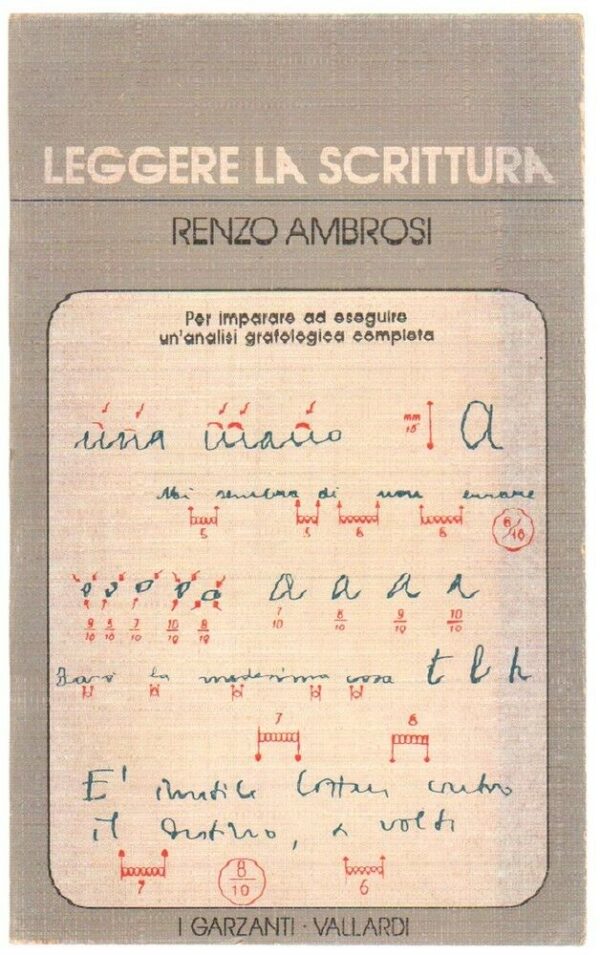 LEGGERE LA SCRITTURA
RENZO AMBROSI
Per imparare ad eseguire
un'analisi grafologica completa
una mano mm 15 a
Mi sembra di non errare
5 5 6 6 6/10
a a a a
9/10 8/10 7/10 10/10 8/10 7/10 8/10 9/10 10/10
Farò la medesima cosa t l h
7 8
E' inutile lottare contro
il destino, a volte
7 8/10 6
I GARZANTI · VALLARDI